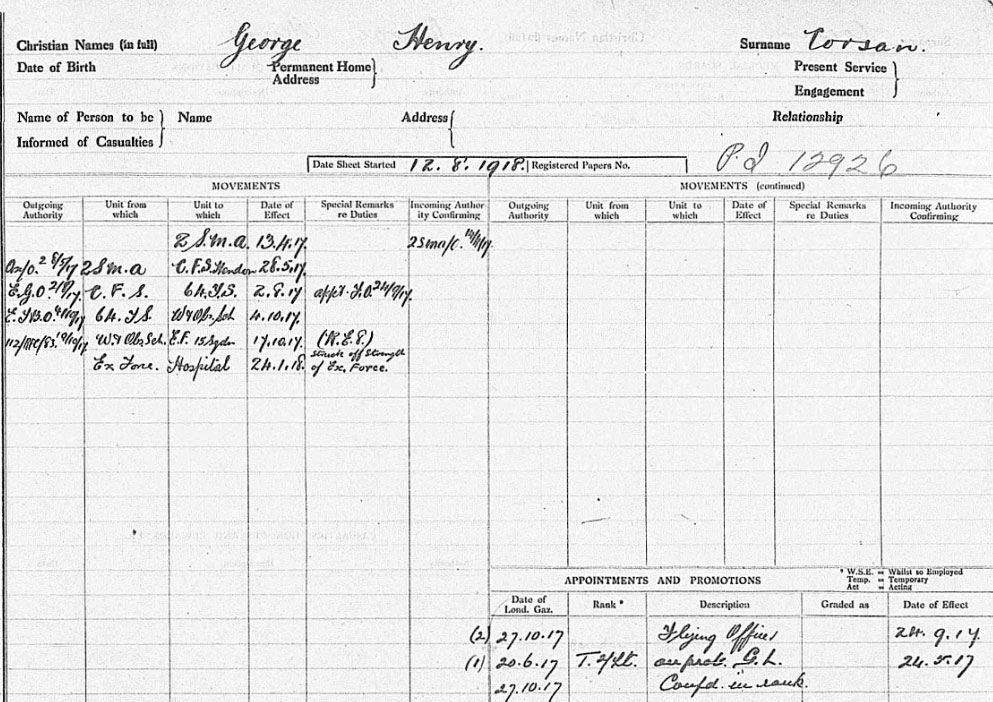 Christian Names (in full) George Henry. Surname Corsan.
Date of Birth Permanent Home Address Present Service Engagement
Name of Person to be Informed of Casualties Name Address Relationship
Date Sheet Started 12.8.1918. Registered Papers No. P.I 12926
MOVEMENTS MOVEMENTS (continued)
Outgoing Authority Unit from which Unit to which Date of Effect Special Remarks re Duties Incoming Authority Confirming Outgoing Authority Unit from which Unit to which Date of Effect Special Remarks re Duties Incoming Authority Confirming
2 S.M.A. 13.4.17. 2SMA/C.
2 S M.A C.F.S. Hendon 28.5.17.
E.G.O. C.F.S. 64.T.S. 2.8.17 appt. F.O. 24/9/17.
64.T.S. W&Obs.Sch 4.10.17.
W&Obs.Sch. E.F. 15 Sqdn 17.10.17. (R.E.8.)
Ex Force. Hospital 24.1.18. struck off strength of Ex. Force.
* W.S.E. = Whilst so Employed
Temp. = Temporary
Act = Acting
APPOINTMENTS AND PROMOTIONS
Date of Lond. Gaz. Rank * Description Graded as Date of Effect
(2) 27.10.17 Flying Officer 24.9.17.
(1) 20.6.17 T. 2/Lt. on prob. G.L. 24.5.17
27.10.17 Confd. in rank.